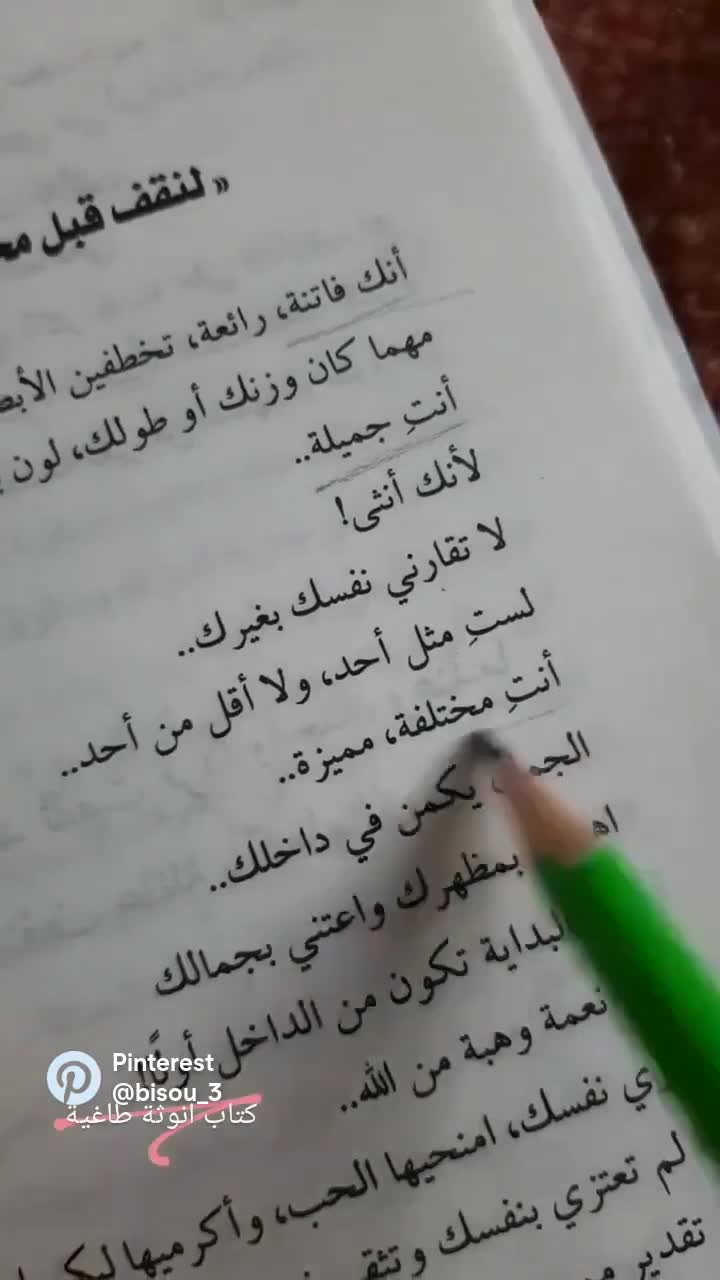 « لنقف قبل
أنك فاتنة، رائعة، تخطفين
مهما كان وزنك أو طولك، لون
أنتِ جميلة..
لأنك أنثى!
لا تقارني نفسك بغيرك..
لستِ مثل أحد، ولا أقل من أحد..
أنتِ مختلفة، مميزة..
يكمن في داخلك..
بمظهرك واعتني بجمالك
البداية تكون من الداخل أولًا
نعمة وهبة من الله..
نفسك، امنحيها الحب، وأكرميها
لم تعتزي بنفسك
تقدير
Pinterest
@bisou_3
كتاب انوثة طاغية